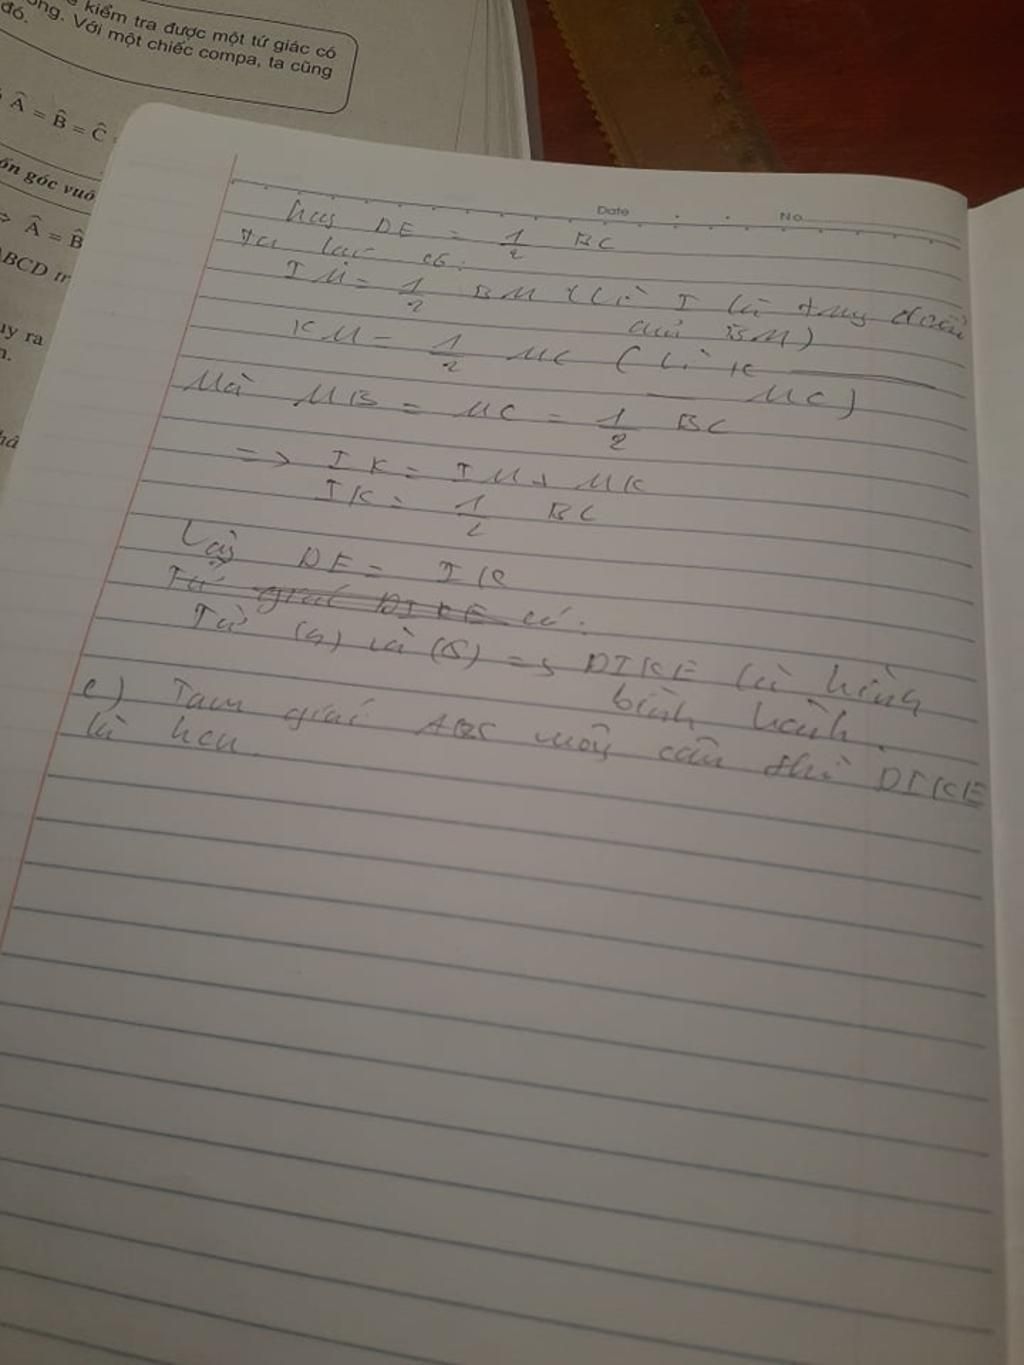 kiểm tra được một tứ giác có
ông. Với một chiếc compa, ta cũng
đó.
Â = B̂ = Ĉ
ốn góc vuô
⇒ Â = B̂
BCD tr
uy ra
hay DE = 1/2 BC
Ta lại có:
IM = 1/2 BM (vì I là trung điểm
của BM)
KM = 1/2 MC (vì K
MC)
Mà MB = MC = 1/2 BC
=> IK = IM + MK
IK = 1/2 BC
Vậy DE = IK
Tứ giác DIKE có:
Từ (4) và (5) => DIKE là hình
bình hành.
c) Tam giác ABC vuông cân thì DIKE
là hcn.
Date No